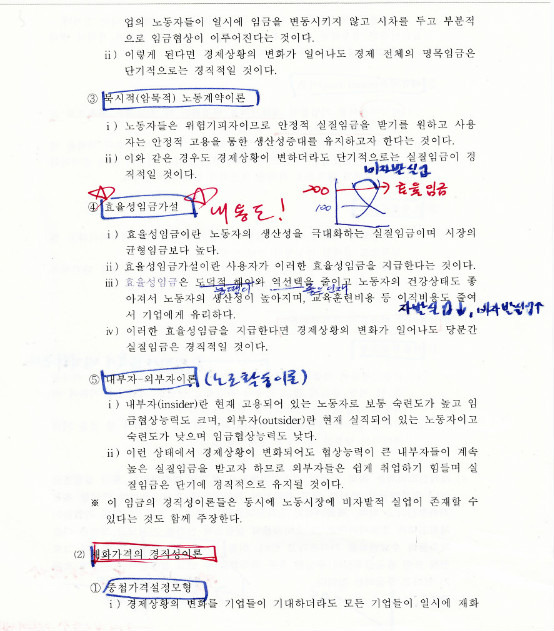 업의 노동자들이 일시에 임금을 변동시키지 않고 시차를 두고 부분적
으로 임금협상이 이루어진다는 것이다.
ii) 이렇게 된다면 경제상황의 변화가 일어나도 경제 전체의 명목임금은
단기적으로는 경직적일 것이다.
③ 묵시적(암묵적) 노동계약이론
i) 노동자들은 위험기피자이므로 안정적 실질임금을 받기를 원하고 사용
자는 안정적 고용을 통한 생산성증대를 유지하고자 한다는 것이다.
ii) 이와 같은 경우도 경제상황이 변하더라도 단기적으로는 실질임금이 경
직적일 것이다.
비자발실업
200
효율임금
100
④ 효율성임금가설
내용도!
i) 효율성임금이란 노동자의 생산성을 극대화하는 실질임금이며 시장의
균형임금보다 높다.
ii) 효율성임금가설이란 사용자가 이러한 효율성임금을 지급한다는 것이다.
iii) 효율성임금은 도덕적 해이와 역선택을 줄이고 노동자의 건강상태도 좋
아져서 노동자의 생산성이 높아지며, 교육훈련비용 등 이직비용도 줄여
서 기업에게 유리하다.
자발실업↓, 비자발실업↑
iv) 이러한 효율성임금을 지급한다면 경제상황의 변화가 일어나도 당분간
실질임금은 경직적일 것이다.
⑤ 내부자-외부자이론 (노조활동이론)
i) 내부자(insider)란 현재 고용되어 있는 노동자로 보통 숙련도가 높고 임
금협상능력도 크며, 외부자(outsider)란 현재 실직되어 있는 노동자이고
숙련도가 낮으며 임금협상능력도 낮다.
ii) 이런 상태에서 경제상황이 변화되어도 협상능력이 큰 내부자들이 계속
높은 실질임금을 받고자 하므로 외부자들은 쉽게 취업하기 힘들며 실
질임금은 단기에 경직적으로 유지될 것이다.
※ 이 임금의 경직성이론들은 동시에 노동시장에 비자발적 실업이 존재할 수
있다는 것도 함께 주장한다.
(2) 재화가격의 경직성이론
① 중첩가격설정모형
i) 경제상황의 변화를 기업들이 기대하더라도 모든 기업들이 일시에 재화